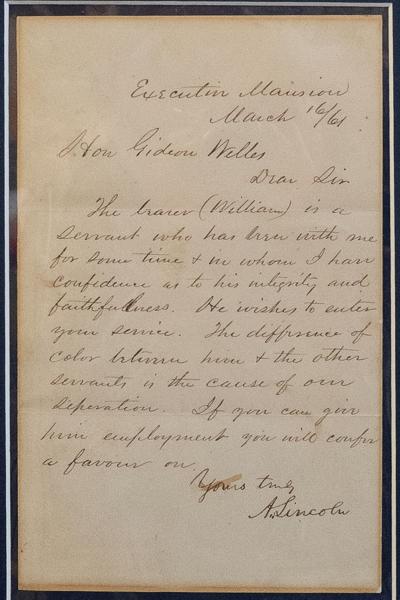 Executive Mansion
March 16/61
Hon Gideon Welles
Dear Sir
The bearer (William) is a
servant who has been with me
for some time & in whom I have
confidence as to his integrity and
faithfullness. He wishes to enter
your service. The difference of
color between him & the other
servants is the cause of our
seperation. If you can give
him employment you will confer
a favour on,
Yours truly
A. Lincoln